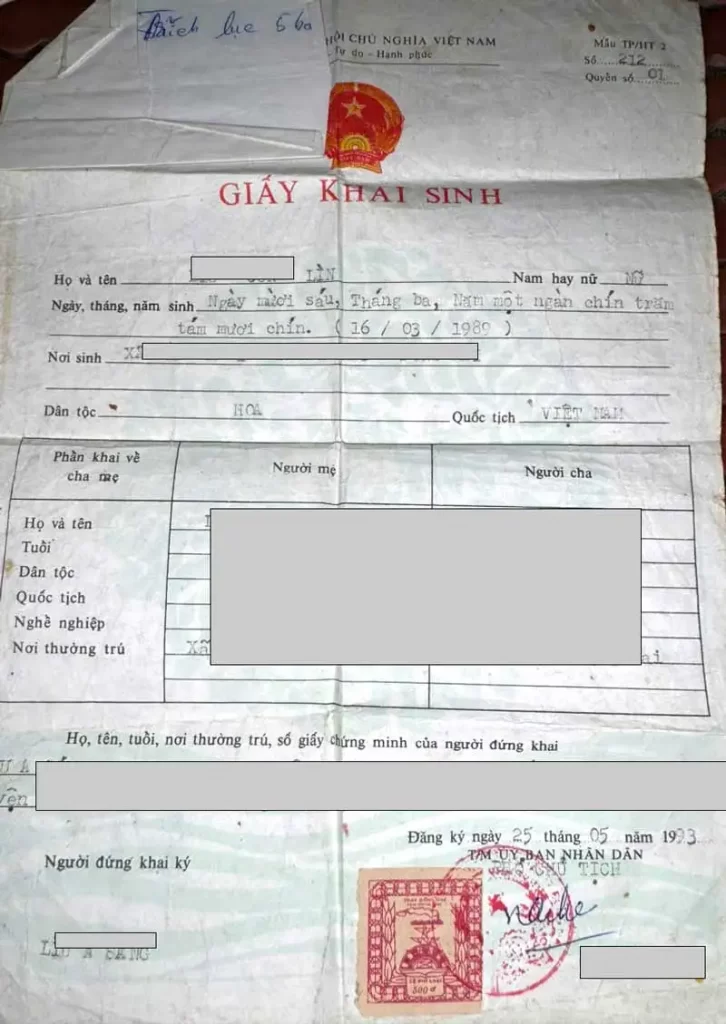 Trích lục 5 bả
HỘI CHỦ NGHĨA VIỆT NAM
Tự do - Hạnh phúc
Mẫu TP/HT 2
Số 212
Quyển số 01
GIẤY KHAI SINH
Họ và tên LÌN Nam hay nữ Nữ
Ngày, tháng, năm sinh Ngày mười sáu, Tháng ba, Năm một ngàn chín trăm
tám mươi chín. ( 16 / 03 / 1989 )
Nơi sinh Xã
Dân tộc HOA Quốc tịch VIỆT NAM
Phần khai về cha mẹ Người mẹ Người cha
Họ và tên
Tuổi
Dân tộc
Quốc tịch
Nghề nghiệp
Nơi thường trú Xã ai
Họ, tên, tuổi, nơi thường trú, số giấy chứng minh của người đứng khai
Đăng ký ngày 25 tháng 05 năm 1993
T/M ỦY BAN NHÂN DÂN
CHỦ TỊCH
Người đứng khai ký
LỆ PHÍ
300đ